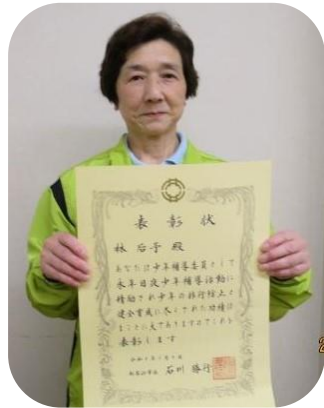 表彰状
殿
あなたは少年補導委員として
永年日夜少年補導活動に
精励され少年の非行防止と
健全育成に尽くされた功績は
まことに大でありますのでこれを
表彰します